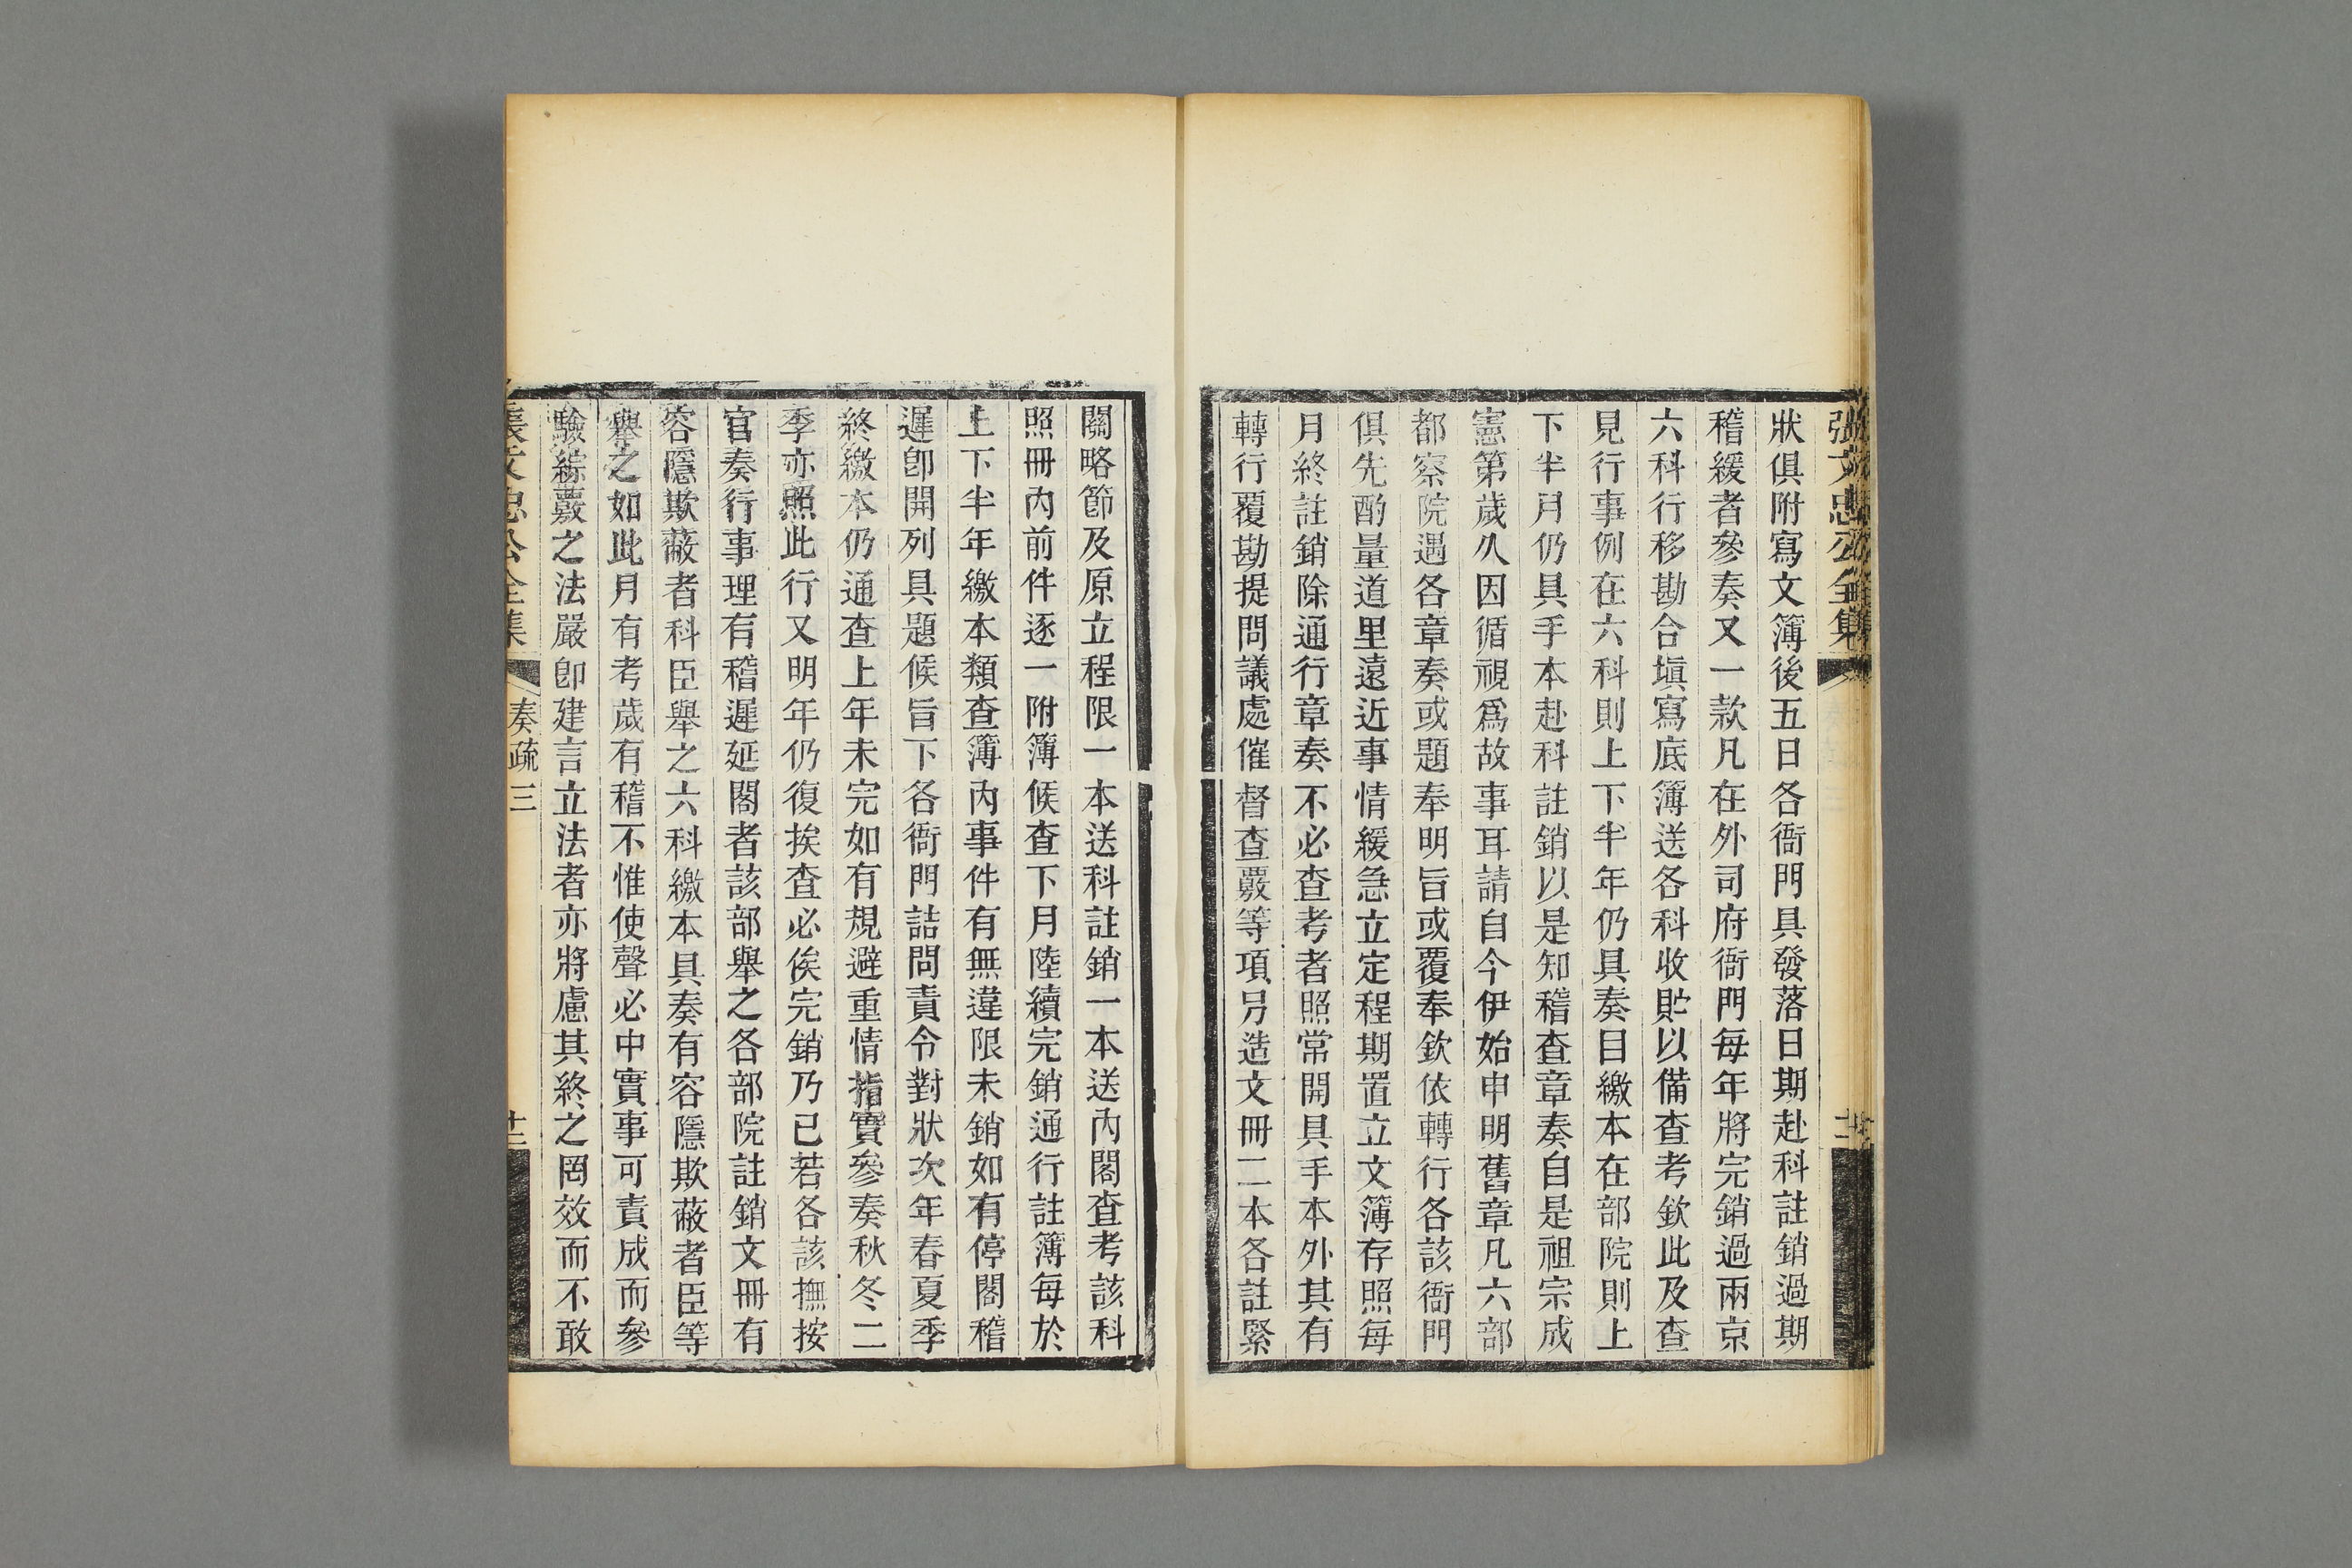 張文忠公全集
狀俱附寫文簿後五日各衙門具發落日期赴科註銷過期
稽緩者參奏又一款凡在外司府衙門每年將完銷過兩京
六科行移勘合塡寫底簿送各科收貯以備查考欽此及查
見行事例在六科則上下半年仍具奏目繳本在部院則上
下半月仍具手本赴科註銷以是知稽查章奏自是祖宗成
憲第歲久因循視爲故事耳請自今伊始申明舊章凡六部
都察院遇各章奏或題奉明旨或覆奉欽依轉行各該衙門
俱先酌量道里遠近事情緩急立定程期置立文簿存照每
月終註銷除通行章奏不必查考者照常開具手本外其有
轉行覆勘提問議處催督查覈等項另造文冊二本各註緊
關略節及原立程限一本送科註銷一本送內閣查考該科
照冊內前件逐一附簿候查下月陸續完銷通行註簿每於
上下半年繳本類查簿內事件有無違限未銷如有停閣稽
遲卽開列具題候旨下各衙門詰問責令對狀次年春夏季
終繳本仍通查上年未完如有規避重情指實參奏秋冬二
季亦照此行又明年仍復挨查必俟完銷乃已若各該撫按
官奏行事理有稽遲延閣者該部舉之各部院註銷文冊有
容隱欺蔽者科臣舉之六科繳本具奏有容隱欺蔽者臣等
舉之如此月有考歲有稽不惟使聲必中實事可責成而參
驗綜覈之法嚴卽建言立法者亦將慮其終之罔效而不敢
張文忠公全集
奏疏三
十二